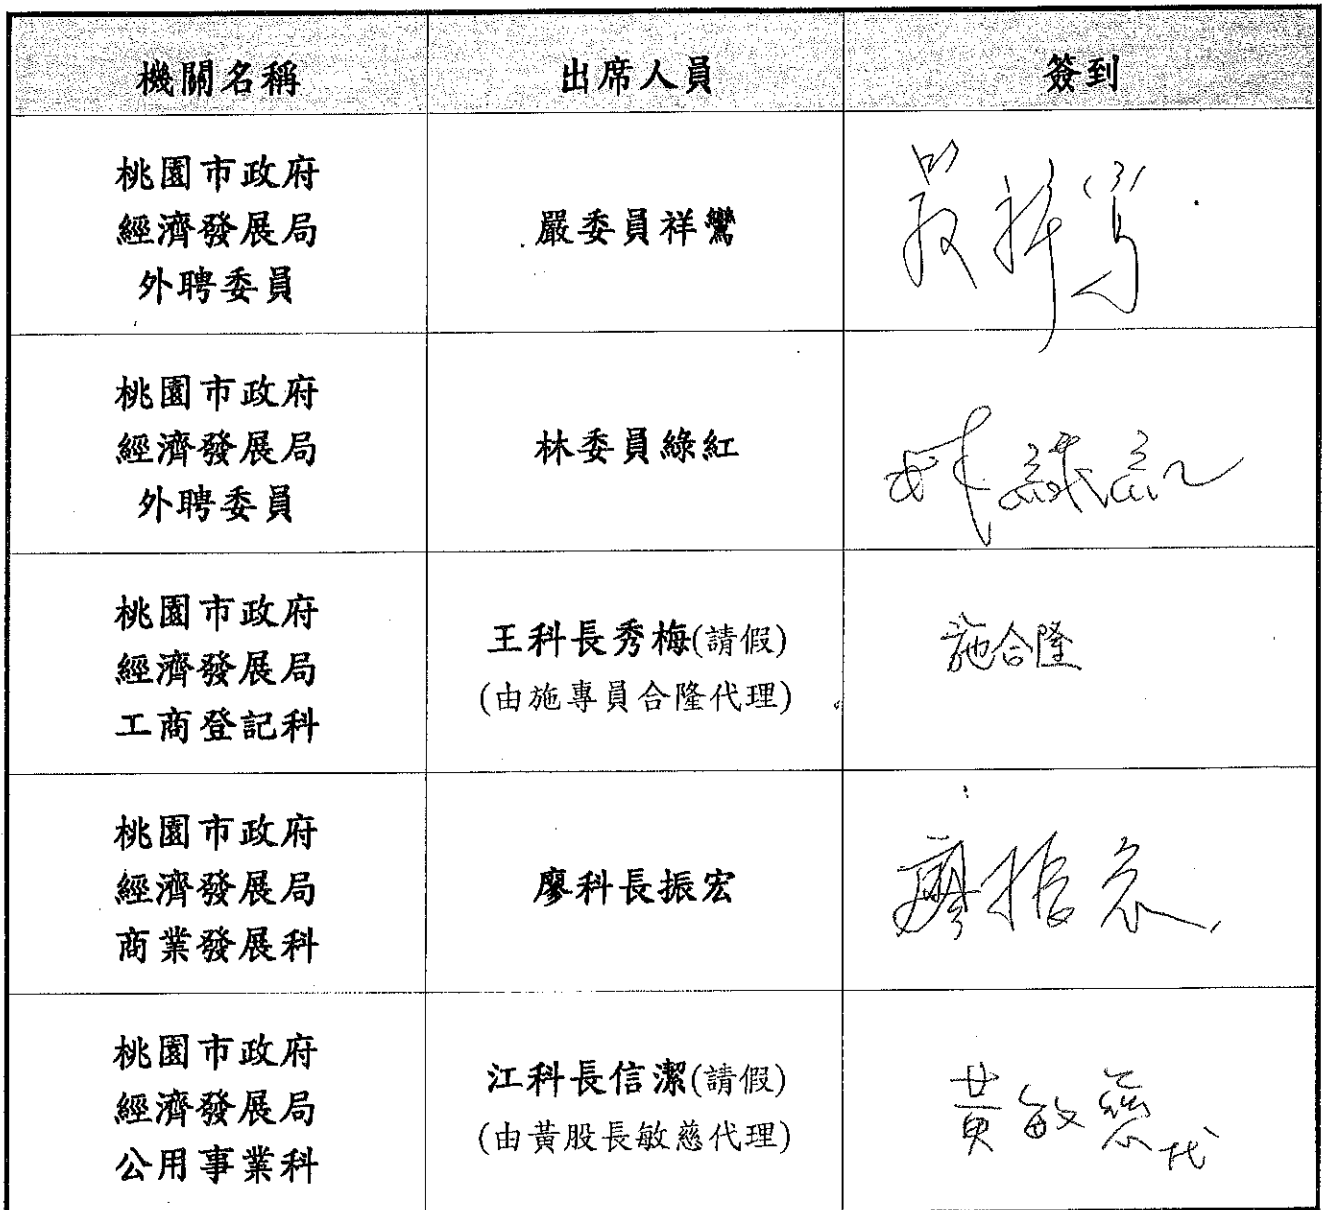 機關名稱 出席人員 簽到
桃園市政府
經濟發展局
外聘委員
嚴委員祥鸞
嚴祥鸞
桃園市政府
經濟發展局
外聘委員
林委員綠紅
林綠紅
桃園市政府
經濟發展局
工商登記科
王科長秀梅(請假)
(由施專員合隆代理)
施合隆
桃園市政府
經濟發展局
商業發展科
廖科長振宏
廖振宏
桃園市政府
經濟發展局
公用事業科
江科長信潔(請假)
(由黃股長敏慈代理)
黃敏慈代